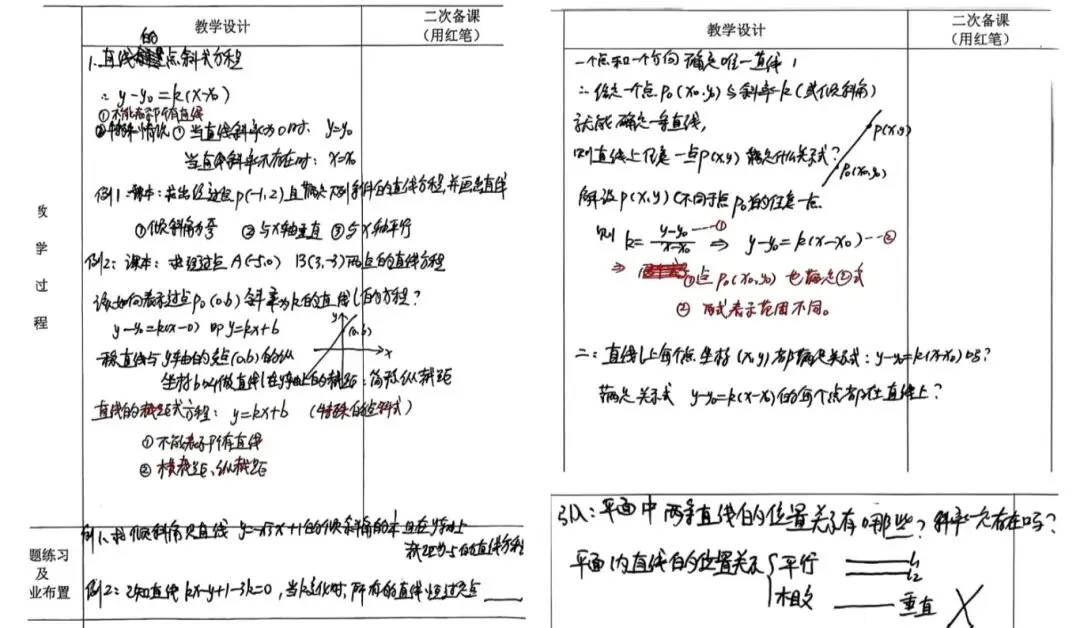 教学设计
二次备课
（用红笔）
教学过程
的
1. 直线点斜式方程
∴ y-y₀=k(x-x₀)
①不能表示所有直线
②特殊情况 ① 当直线斜率为0时. y=y₀
当直线斜率不存在时: x=x₀
例1:课本:求出经过点P(-1,2)且满足下列条件的直线方程,并画出直线
① ②与x轴垂直 ③与x轴平行
例2: 课本: 求经过点A(-5,0) B(3,-3)两点的直线方程
该如何表示过点P₀(0,b) 斜率为k的直线l的方程?
y-y₀=k(x-0) 即y=kx+b
y
(0,b)
x
称直线与y轴的交点(0,b)的纵
坐标b叫做直线l在y轴上的截距:简称纵截距
直线的斜截式方程: y=kx+b (特殊的点斜式)
① 不能表示所有直线
② 横截距、纵截距
题练习
及
业布置
例1.求倾斜角是直线 y=-√3x+1的倾斜角的 且在y轴上
截距为-5的直线方程
例2:已知直线kx-y+1-3k=0,当k变化时,所有的直线恒过定点____
教学设计
二次备课
（用红笔）
一个点和一个方向确定唯一直线!
∴给定一个点P₀(x₀,y₀)与斜率k(或倾斜角)
就能确定一条直线,
则直线上任意一点P(x,y)满足什么关系式?
P(x,y)
P₀(x₀,y₀)
解设P(x,y)不同于点P₀的任意一点.
则 k=y-y₀/x-x₀ ---① ⇒ y-y₀=k(x-x₀)---②
⇒ ①点P₀(x₀,y₀)也满足②式
② 两式表示范围不同。
二:直线l上每个点坐标(x,y)都满足关系式:y-y₀=k(x-x₀)吗?
满足关系式 y-y₀=k(x-x₀)的每个点都在直线上?
引入:平面中两条直线的位置关系有哪些?斜率一定存在吗?
平面内直线的位置关系 { 平行 l₁
l₂
相交 —— 垂直